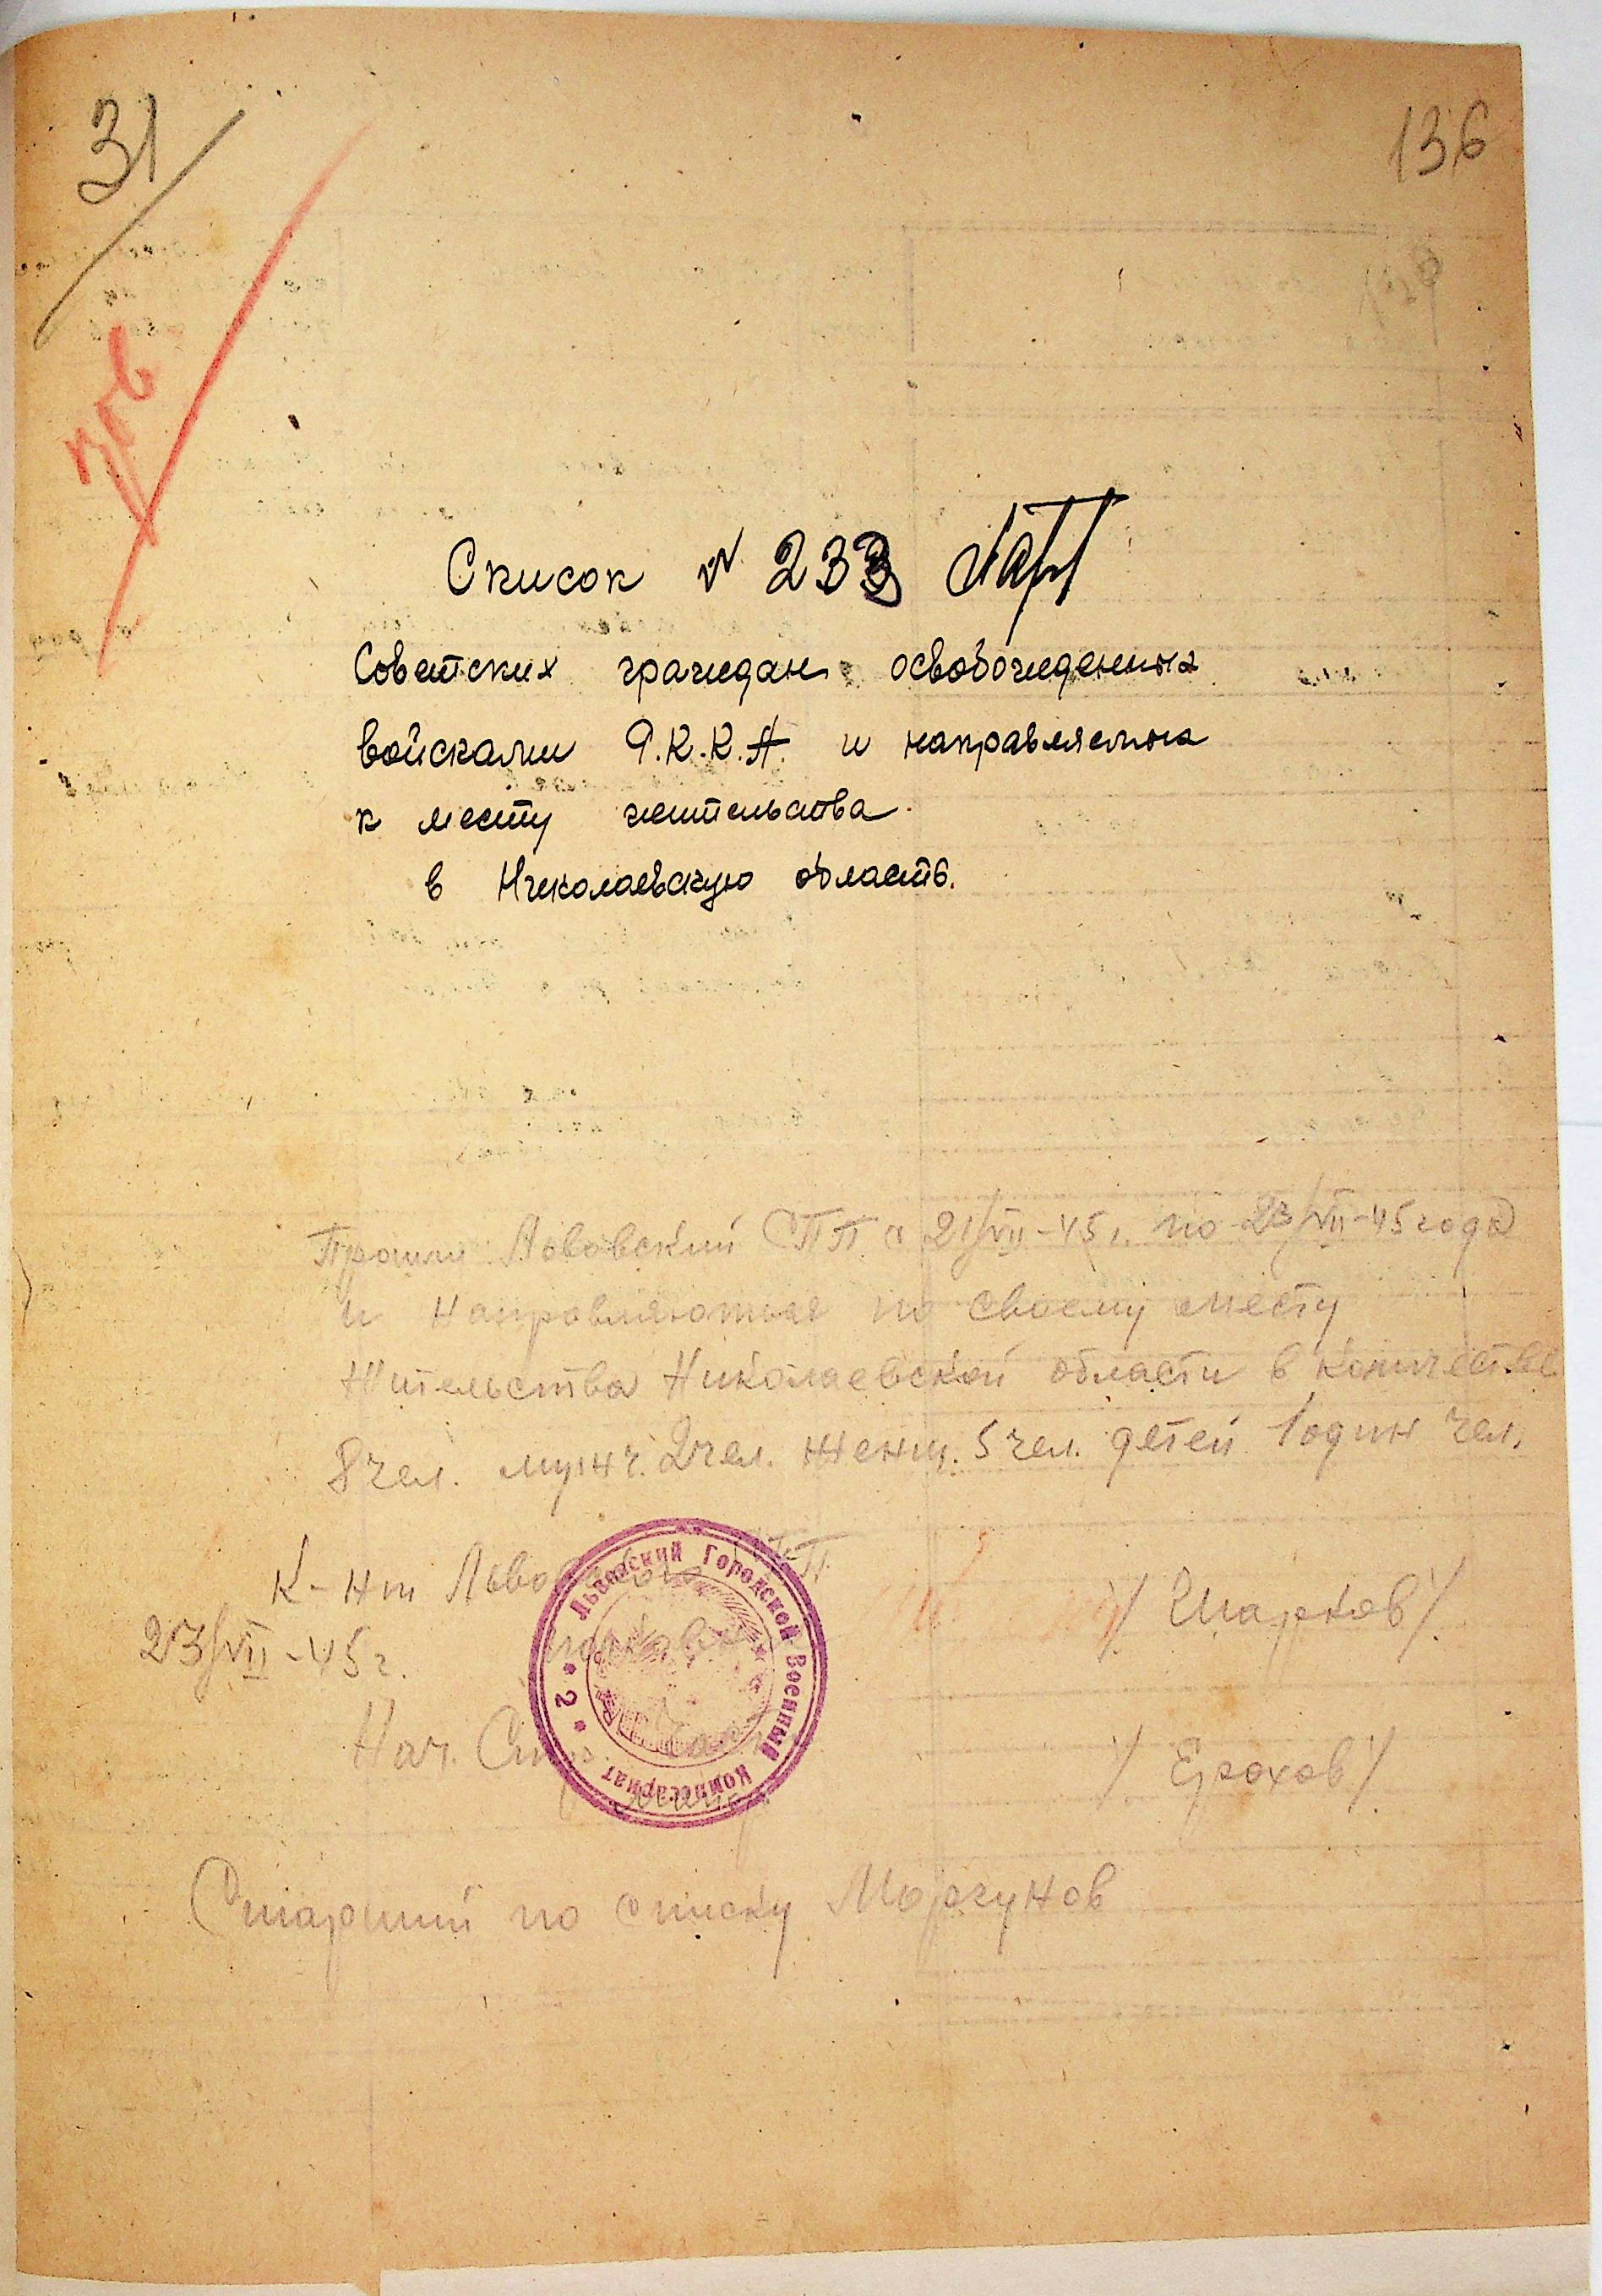 31
136
Список № 233
Советских граждан освобожденных
войсками Р.К.К.А. и направляемых
к месту жительства
в Николаевскую область.
Прошли Львовский СПП с 21/VII-45 г. по 23/VII-45 года
и направляются по своему месту
жительства Николаевской области в количестве
8 чел. мужч. 2 чел. женщ. 5 чел. детей 1 один чел.
К-нт Львовского СПП
/ Шарков /
23/VII-45 г.
Нач.
/ Ерохов /
Львовский Городской Военный Комиссариат * 2 *
Старший по списку Моргунов